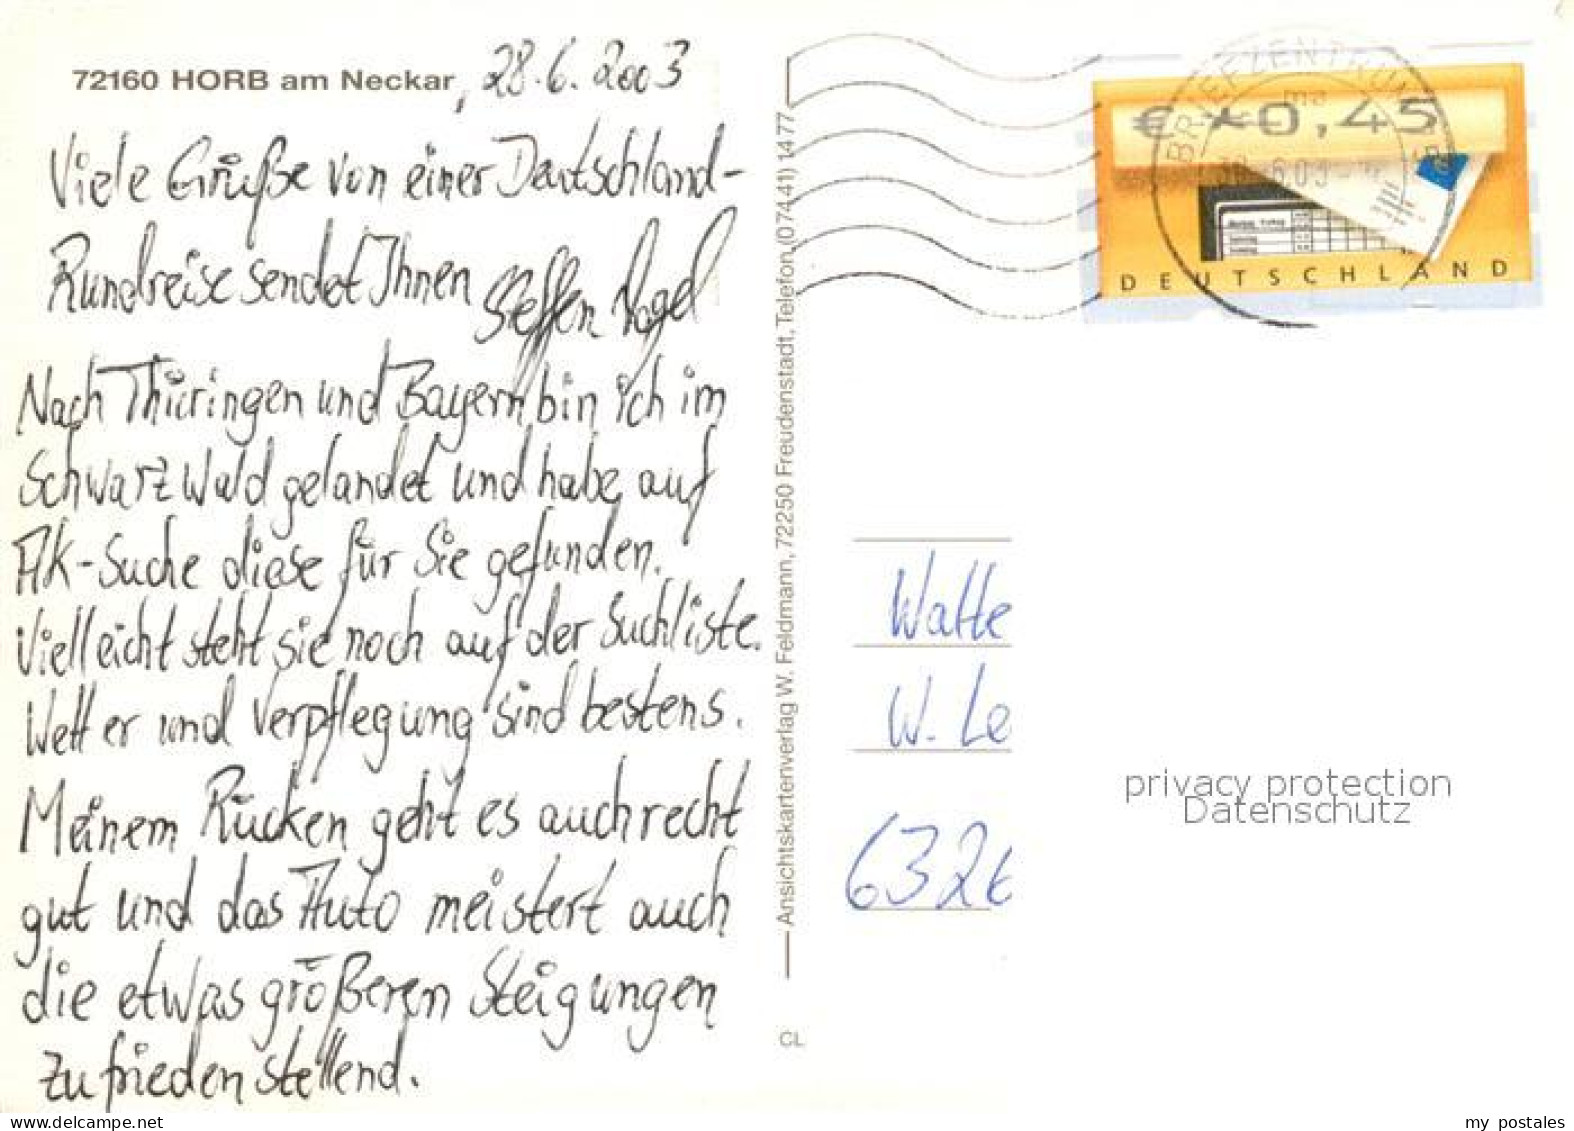 72160 HORB am Neckar, 28.6.2003
Viele Grüße von einer Deutschland-
Rundreise sendet Ihnen Steffen Vogel
Nach Thüringen und Bayern bin ich im
Schwarzwald gelandet und habe auf
AK-Suche diese für Sie gefunden.
Vielleicht steht sie noch auf der Suchliste.
Wetter und Verpflegung sind bestens.
Meinem Rücken geht es auch recht
gut und das Auto meistert auch
die etwas größeren Steigungen
zufrieden stellend.
Ansichtskartenverlag W. Feldmann, 72250 Freudenstadt, Telefon (07441) 1477
CL
BRIEFZENTRUM
€ *0,45
DEUTSCHLAND
Watte
W. Le
6326
privacy protection
Datenschutz
delcampe.net
my postales